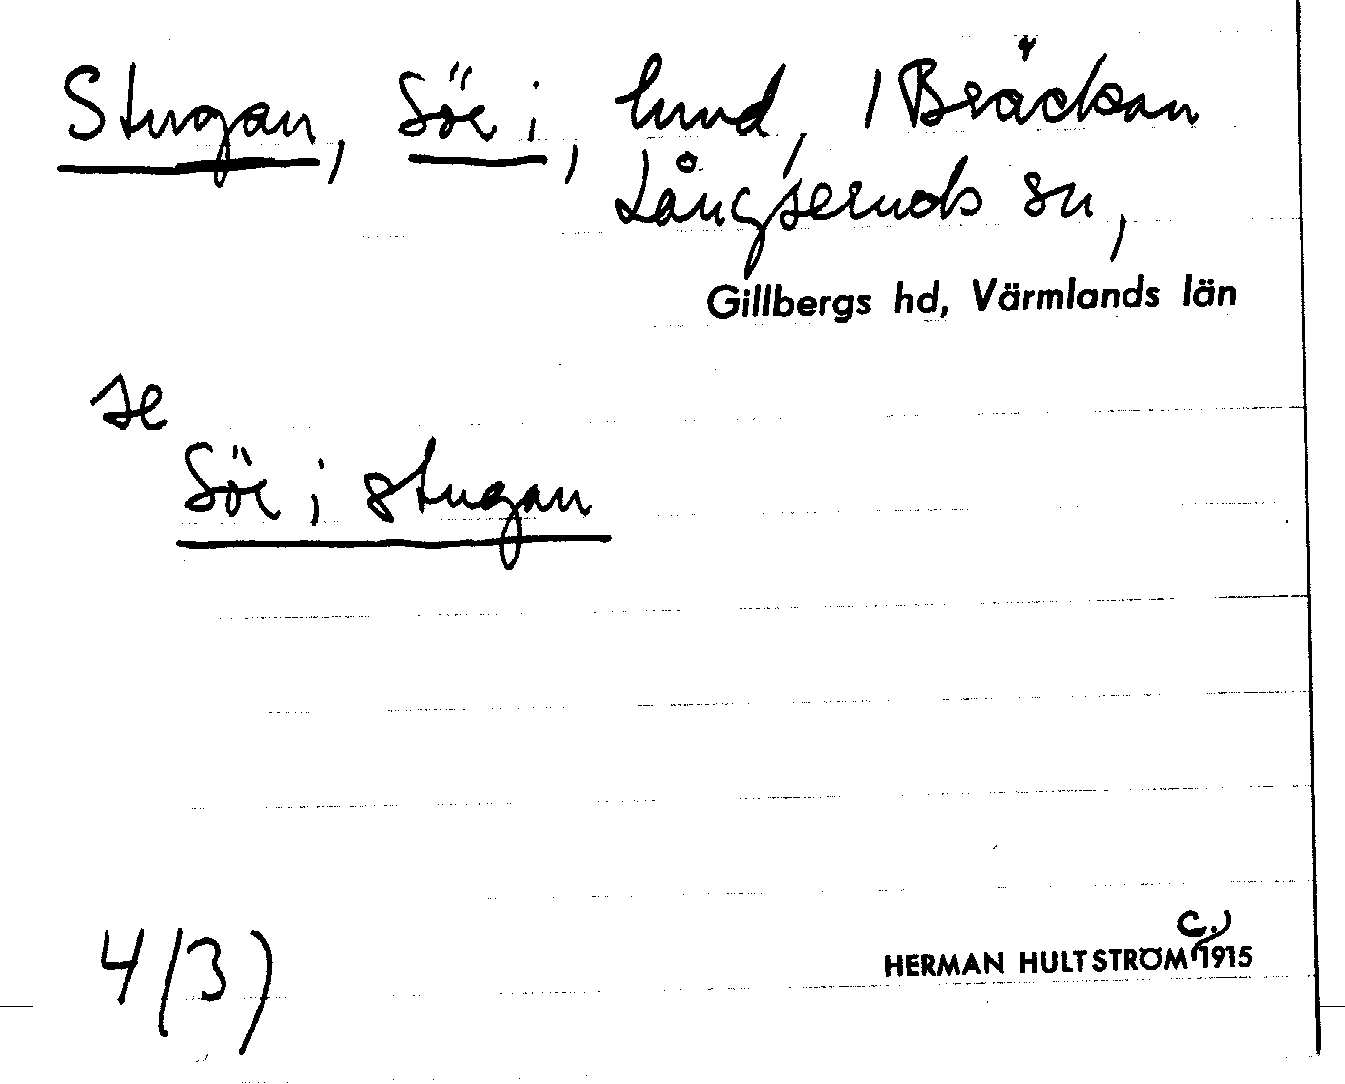 Stugan, Sör i, hmd, / Bräckan
Långseruds sn,
Gillbergs hd, Värmlands län
se
Sör i stugan
4 (3)
c.)
HERMAN HULTSTRÖM 1915